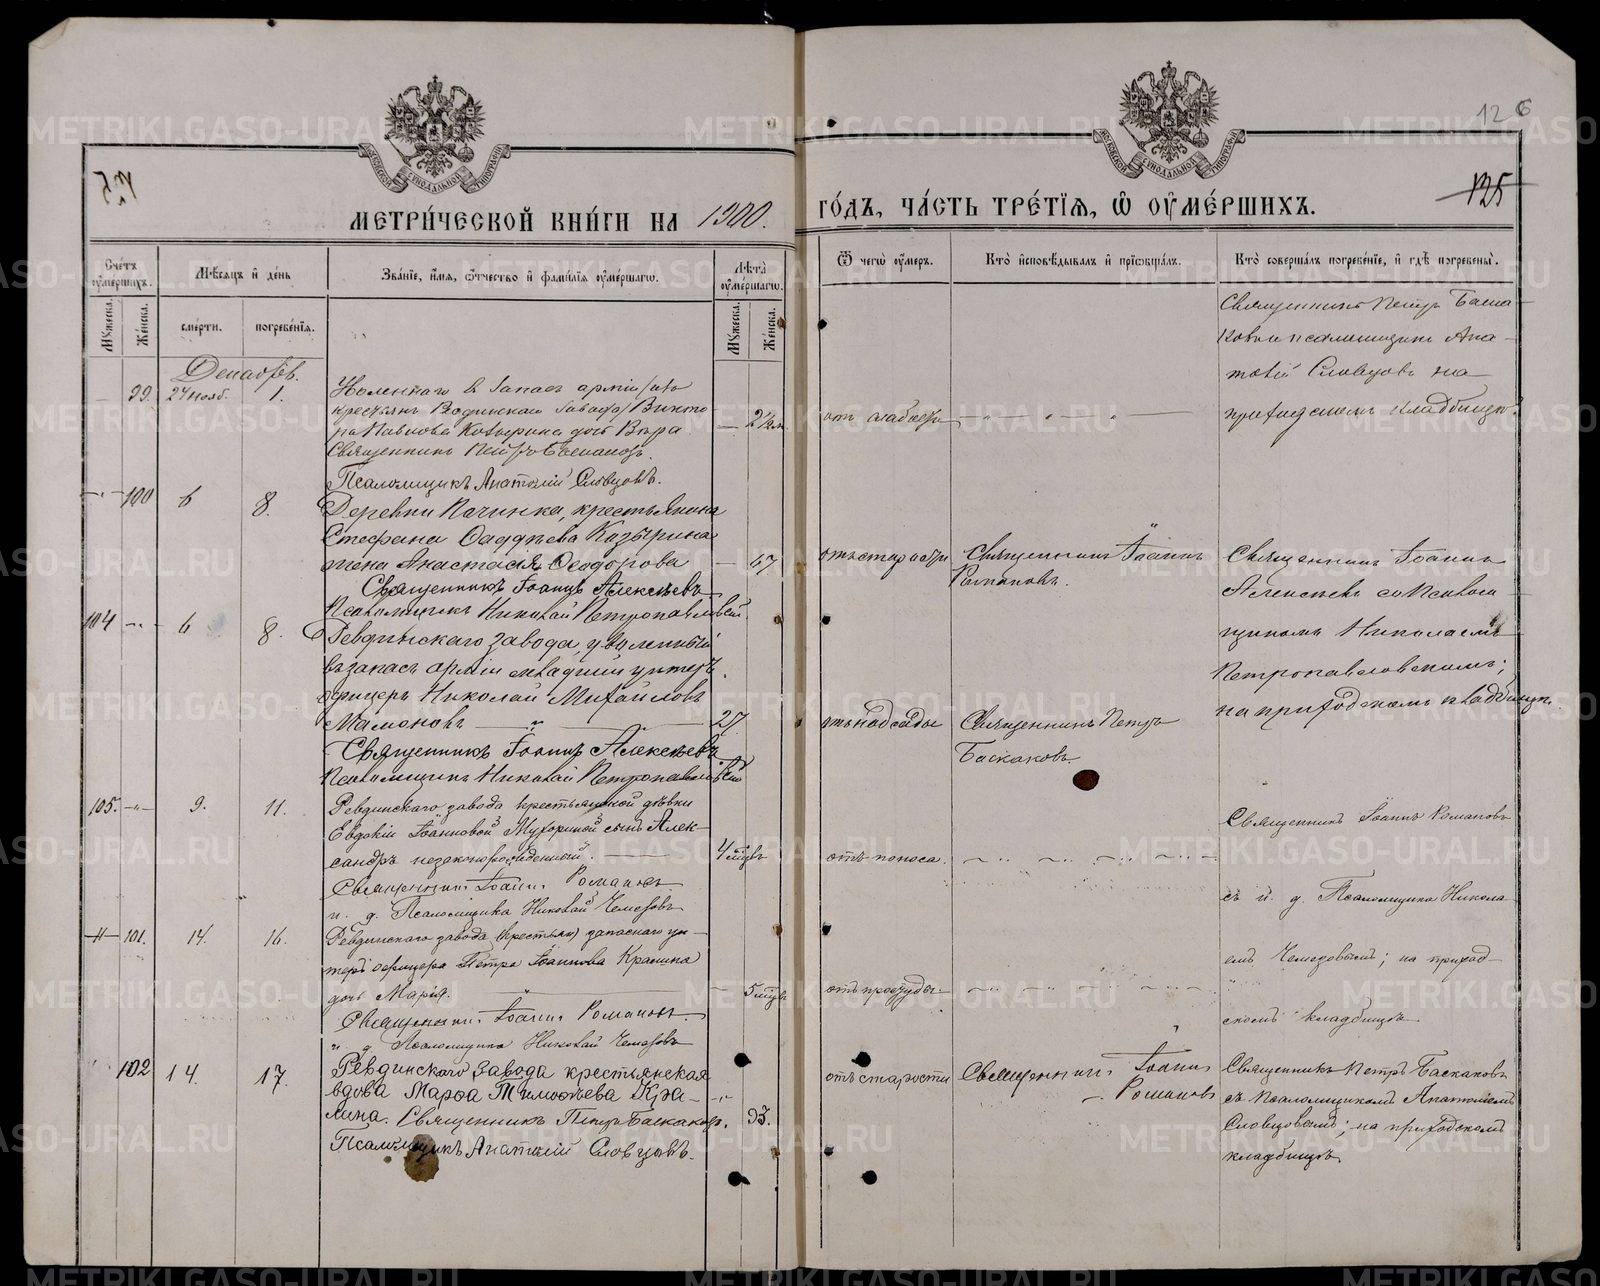 126
125
125
МЕТРИ́ЧЕСКОЙ КНИ́ГИ НА 1900.
ГО́ДЪ, ЧА́СТЬ ТРЕ́ТІѦ, Ѡ҆ ОУ҆МЕ́РШИХЪ.
Сче́тъ оу҆ме́ршихъ.
Мѣ́сяцъ и҆ де́нь
Зва́ніе, и҆́мя, ѻ҆́тчество и҆ фами́лія оу҆ме́ршагѡ.
Лѣ́та оу҆ме́ршагѡ.
Ѿ чегѡ̀ оу҆́меръ.
Кто̀ и҆сповѣ́дывалъ и҆ прїѡбща́лъ.
Кто̀ соверша́лъ погребе́ніе, и҆ гдѣ̀ погребены̀.
Мꙋ́жеска.
Же́нска.
сме́рти.
погребе́нія.
Мꙋ́жеска.
Же́нска.
Декабрь.
99. 27 нояб. 1.
въ запасъ арміи
крестьян. Ревдинскаго завода Викто
ра Павлова дочь Вѣра
Священникъ Петръ Баскаковъ.
Псаломщикъ Анатолій Словцовъ.
отъ
Священникъ Петръ Баска
ковъ и псаломщикъ Ана
толій Словцовъ на
приходскомъ кладбищѣ.
100 6 8.
Деревни Починка, крестьянина
Стефана Фаддѣева Казырина
жена Анастасія Ѳеодорова
67
Священникъ Іоаннъ Алексѣевъ
Псаломщикъ Николай Петропавловскій.
отъ старости
Священникъ Іоаннъ
Романовъ.
Священникъ Іоаннъ
Алексѣевъ со Псалом
щикомъ Николаемъ
Петропавловскимъ;
на приходскомъ кладбищѣ.
104 6 8.
Ревдинскаго завода, уволенный
въ запасъ арміи младшій унтеръ
офицеръ Николай Михайловъ
Мамоновъ
27
Священникъ Іоаннъ Алексѣевъ
Псаломщикъ Николай Петропавловскій
отъ надсады
Священникъ Петръ
Баскаковъ.
105. 9. 11.
Ревдинскаго завода крестьянской дѣвки
Евдокіи Іоанновой Мухориной сынъ Алек-
сандръ незаконорожденный.
4 мцъ
Священникъ Іоаннъ Романовъ
и. д. Псаломщика Николай Чемезовъ
отъ поноса.
Священникъ Іоаннъ Романовъ
съ и. д. Псаломщика Никола
емъ Чемезовымъ; на приход-
скомъ кладбищѣ
101. 14. 16.
Ревдинскаго завода (крестьян) запаснаго ун-
теръ офицера Петра Іоаннова Кралина
дочь Марія.
5 мцъ
Священникъ Іоаннъ Романовъ.
и. д. Псаломщика Николай Чемезовъ
отъ простуды.
102 14. 17.
Ревдинскаго завода крестьянская
вдова Марѳа Тимоѳеева Кра-
лина. Священникъ Петръ Баскаковъ.
93.
Псаломщикъ Анатолій Словцовъ.
отъ старости
Священникъ Іоаннъ
Романовъ
Священникъ Петръ Баскаковъ
съ псаломщикомъ Анатоліемъ
Словцовымъ; на приходскомъ
кладбищѣ.
METRIKI.GASO-URAL.RU